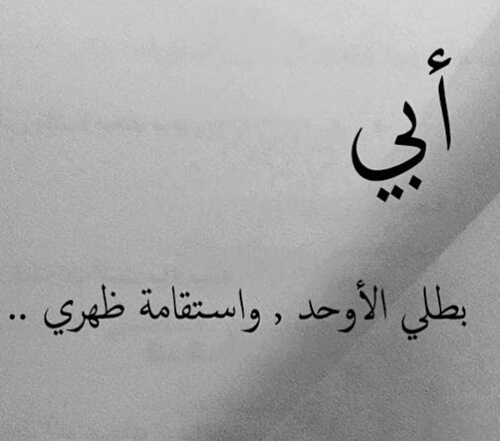 أبي
بطلي الأوحد , واستقامة ظهري ..